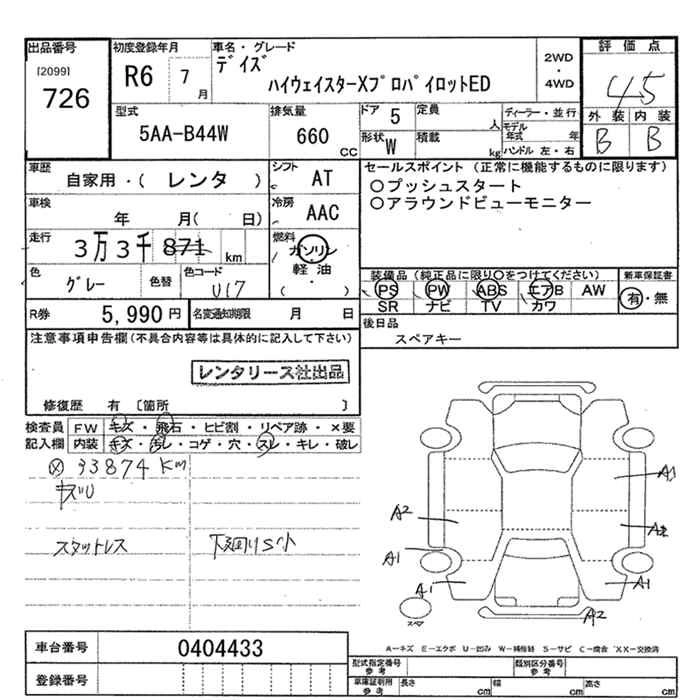 出品番号 初度登録年月 車名・グレード 2WD ・ 4WD 評価点
[2099] 726 R6 7月 デイズ ハイウェイスターXプロパイロットED 4.5
型式 5AA-B44W 排気量 660 CC ドア 5 定員 人 ディーラー・並行 外装 内装
形状 W 積載 kg モデル年式 年 ハンドル 左・右 B B
車歴 自家用・( レンタ ) シフト AT セールスポイント (正常に機能するものに限ります)
○プッシュスタート
○アラウンドビューモニター
車検 年 月( 日) 冷房 AAC
走行 3万3千871 km 燃料 ガソリン・軽油・( )
色 グレー 色替 色コード U17
装備品 (純正品に限り○をつけてください) 新車保証書
PS PW ABS エアB AW 有・無
SR ナビ TV カワ
R券 5,990円 名変通知期限 月 日
後日品 スペアキー
注意事項申告欄 (不具合内容等は具体的に記入して下さい)
レンタリース社出品
修復歴 有 [箇所 ]
検査員記入欄 FW キズ・飛石・ヒビ割・リペア跡・×要
内装 キズ・汚レ・コゲ・穴・スレ・キレ・破レ
ⓧ 33874 Km
キズU
スタットレス 下廻りS小
A1
A2 A2
A1
A1 A1
スペア A2
A-キズ E-エクボ U-凹み W-補修跡 S-サビ C-腐食 XX-交換済
車台番号 0404433
登録番号
型式指定番号 参考 類別区分番号 参考
車庫証明用 参考 長さ cm 幅 cm 高さ cm